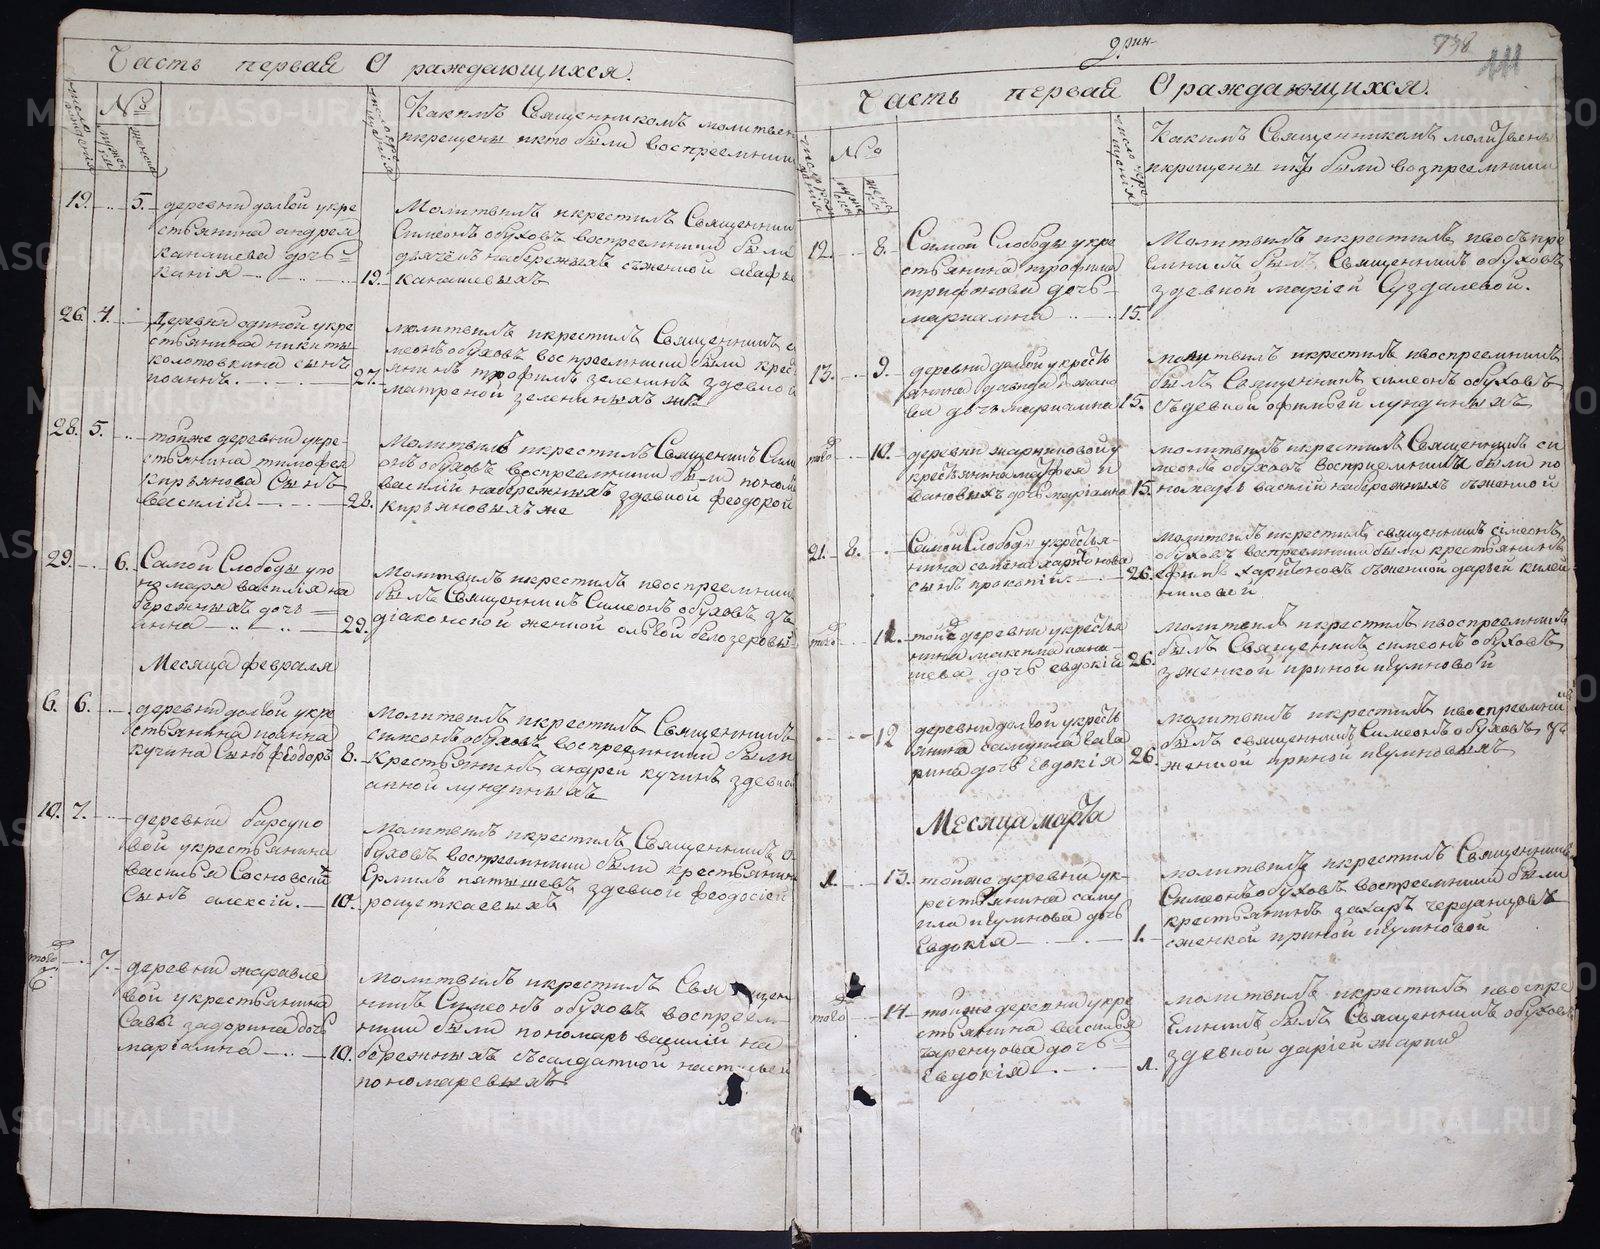 Часть первая О раждающихся.
число рождения
№о
мужеска
женска
число крещения
Какимъ Священникомъ молитвен
икрещены икто были восприемники
19. 5. деревни долгой укре
стьянина андрея
канашева дочь
ксанія 19.
Молитвилъ икрестилъ Священник
Симеонъ обуховъ восприемники были
дьячекъ набережныхъ съженкой
канашевыхъ
26. 4. Деревни одиной укре
стьянина никиты
колотовкина сынъ
иоаннъ. 27.
молитвилъ икрестилъ Священникъ с
меонъ обуховъ восприемники были крес
янинъ трофимъ зеленинъ здевкой
матреной зелениныхъ
28. 5. тойже деревни укре
стьянина тимофея
кирьянова Сынъ
василій. 28.
Молитвилъ икрестилъ Священникъ Симе
онъ обуховъ восприемники были поном
василій набережныхъ здевкой феодорой
кирьяновыхъ же
29. 6. Самой Слободы упо
номаря василія на
бережныхъ дочь
анна 29.
Молитвилъ икрестилъ ивосприемник
былъ Священникъ Симеонъ обуховъ зъ
діаконской женкой ольгой белозеровы
Месяца февраля
6. 6. деревни долгой укре
стьянина иоанна
кучина Сынъ феодоръ 8.
молитвилъ икрестилъ Священникъ
симеонъ обуховъ восприемники были
Крестьянинъ андрей кучинъ здевкой
анной лундиныхъ
10. 7. деревни барсуко
вой укрестьянина
василья Сосновских
Сынъ алексій. 10.
молитвилъ икрестилъ Священникъ о
буховъ восприемники были крестьянин
Ермилъ пятышевъ здевкой феодосіей
рощеткаевыхъ
того 7. деревни журавле
вой укрестьянина
Савы задорина дочь
маріамна 10.
молитвилъ икрестилъ Священ
никъ Симеонъ обуховъ восприем
ники были пономарь василій на
бережныхъ съсалдаткой настасьей
пономаревыхъ
738
111
Часть первая О раждающихся.
№о
Какимъ Священникомъ молитвены
икрещены икто были возприемники
12. 8. Самой Слободы укре
стьянина трофима
трифонова дочь
мариамна 15.
Молитвилъ икрестилъ ивосъпре
емникъ былъ Священникъ обуховъ
здевкой маріей Суздалевой.
13. 9. деревни долгой укресть
янина давида
ва дочь мариамна 15.
молитвилъ икрестилъ ивосприемникъ
былъ Священникъ симеонъ обуховъ
съдевкой офимьей лундиныхъ
того 10. деревни
крестьянина матфея и
вановыхъ дочь маріамна 15.
молитвилъ икрестилъ Священникъ си
меонъ обуховъ восприемники были по
номарь василій набережныхъ съженкой
21. 8. Самой Слободы укрестья
нина семена харитонова
сынъ прокопій. 26.
молитвилъ икрестилъ священникъ сімеонъ
обуховъ восприемники были крестьянинъ
ефимъ харитоновъ съженкой дарьей
того 11. тойже деревни укрестья
нина максима кана
шева дочь евдокія 26.
молитвилъ икрестилъ ивосприемникъ
былъ Священникъ симеонъ обуховъ
зженкой ириной игумновой
12 деревни долгой укресть
янина самуила
дочь Евдокія 26.
молитвилъ икрестилъ ивосприемник
былъ священникъ Симеонъ обуховъ зъ
женкой ириной игумновыхъ
Месяца марта
1. 13. тойже деревни ук
рестьянина саму
ила игумнова дочь
Евдокія 1.
молитвилъ икрестилъ Священникъ
Симеонъ обуховъ восприемники были
крестьянинъ захаръ черданцовъ
сженкой ириной игумновой
того 14. тойже деревни укре
стьянина василья
дочь
Евдокія 1.
молитвилъ икрестилъ ивоспре
емникъ былъ Священникъ обуховъ
здевкой даріей
METRIKI.GASO-URAL.RU